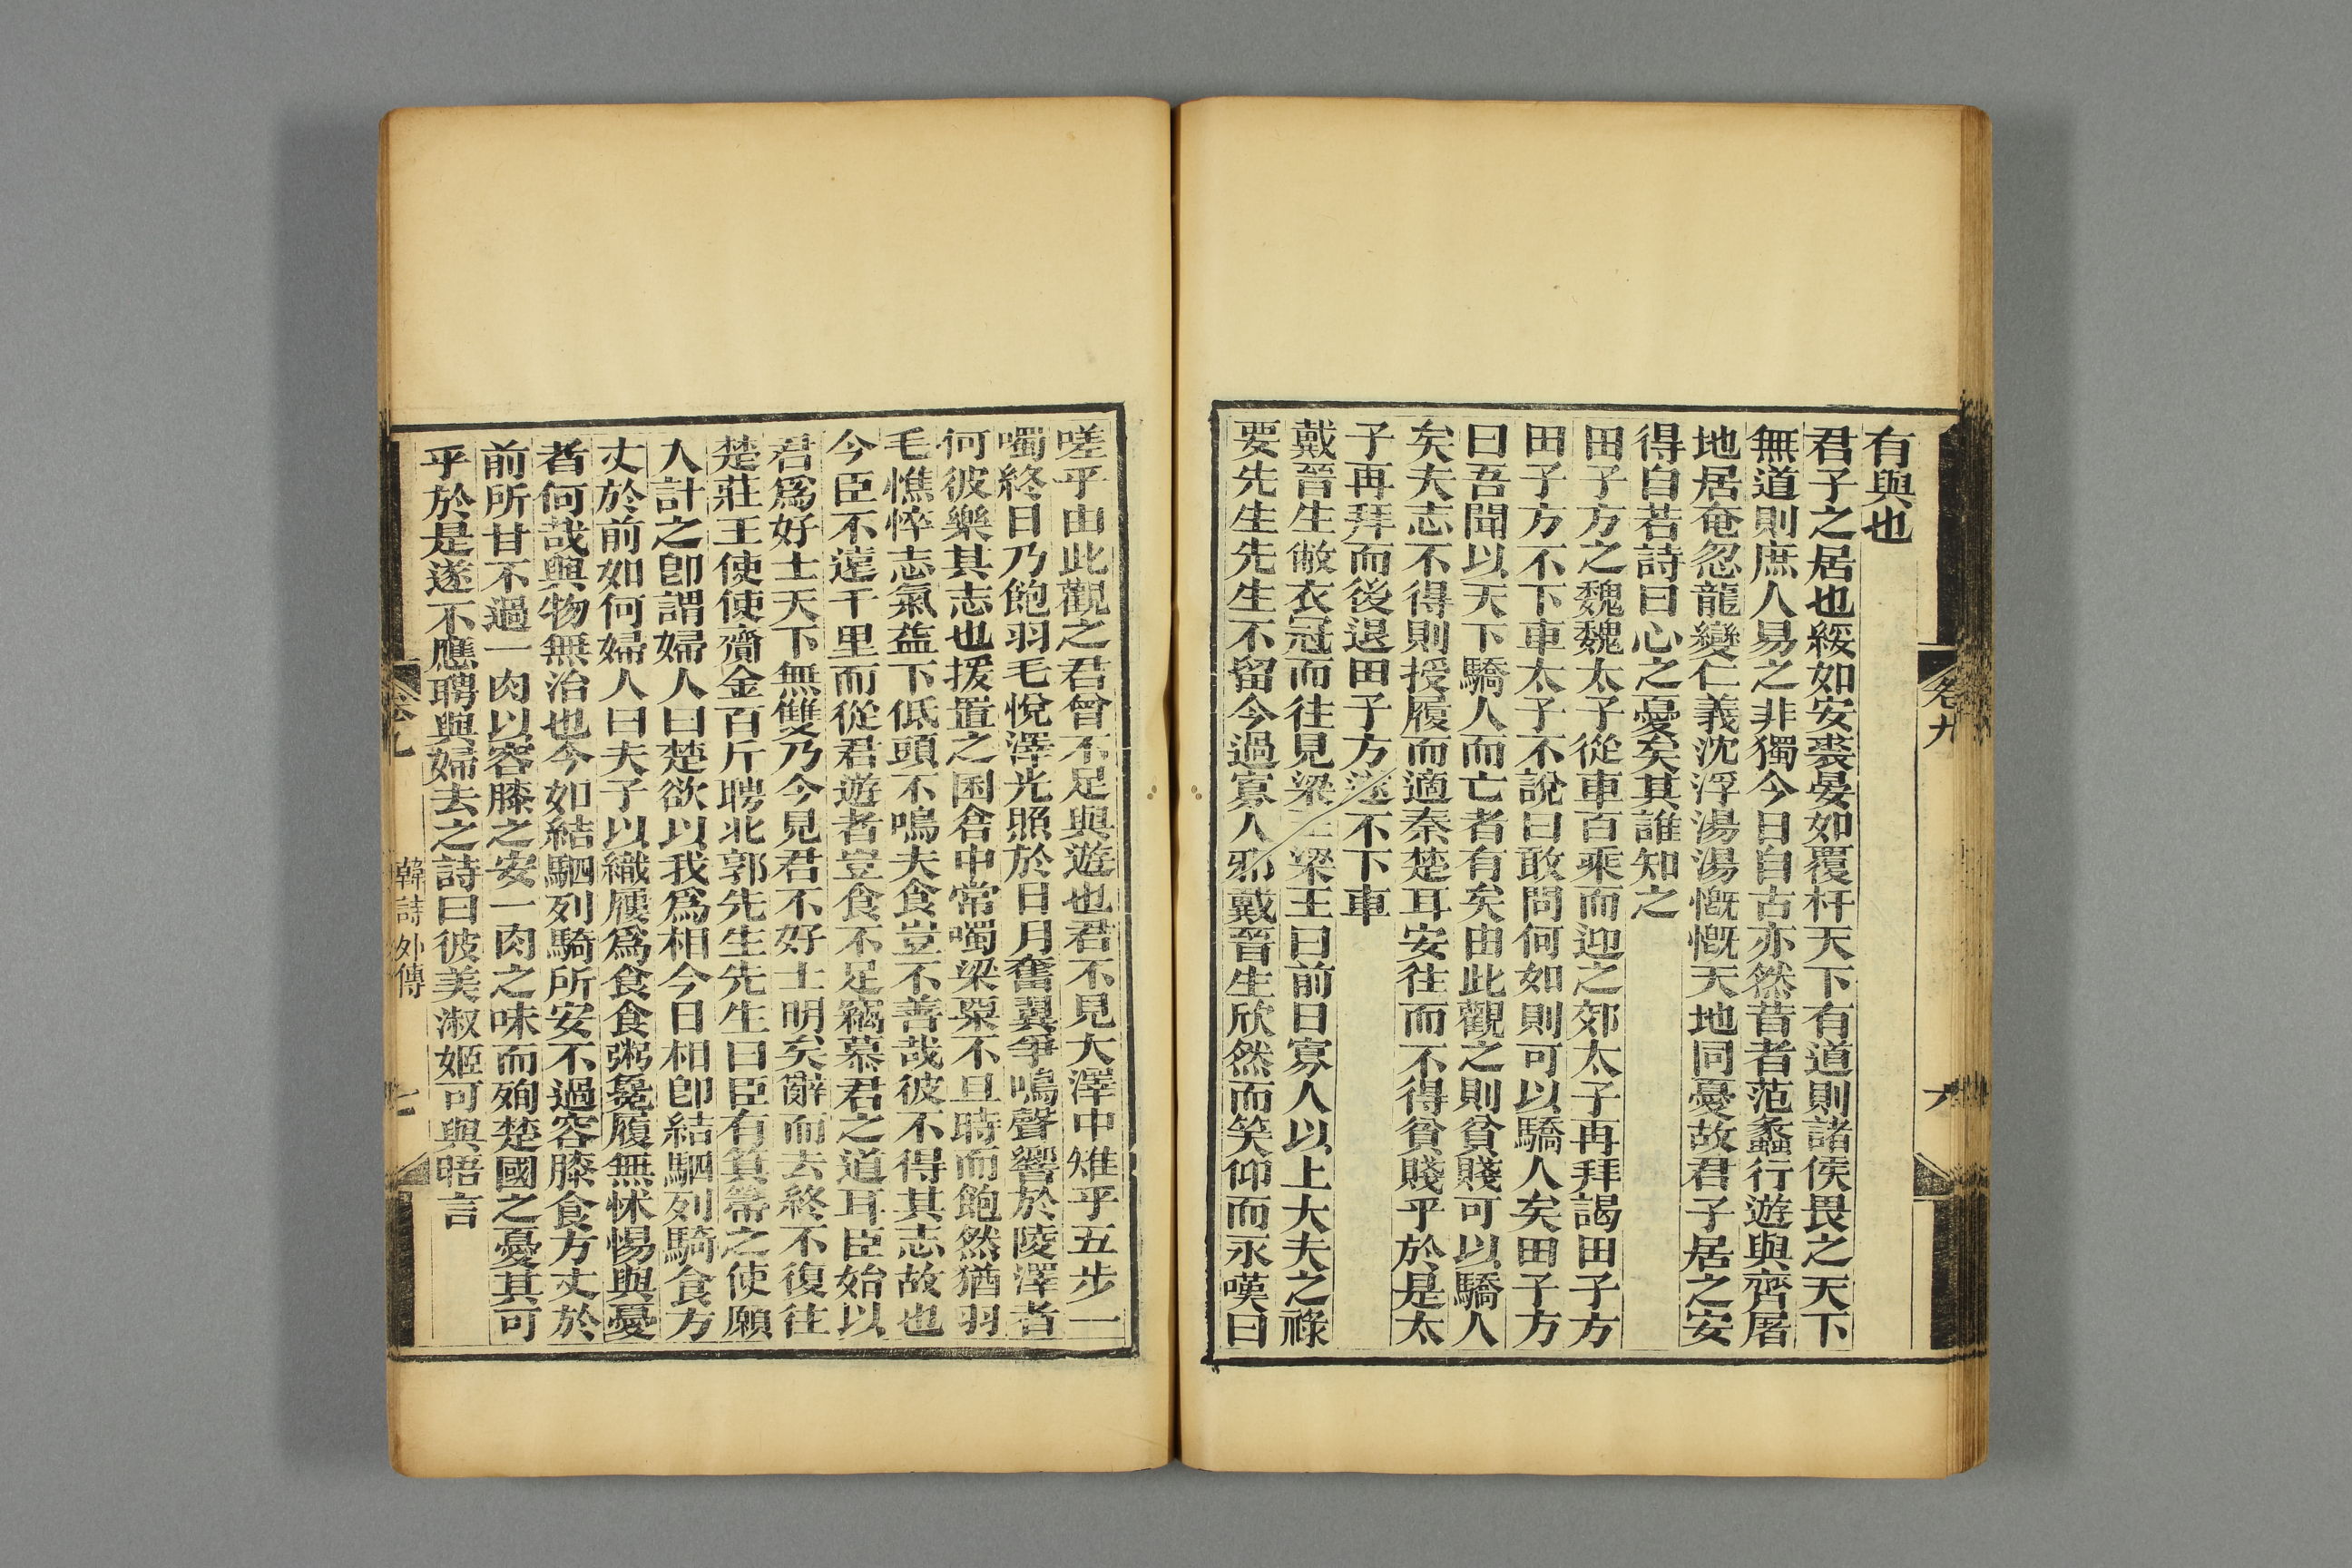 有與也
君子之居也綏如安裘晏如覆杅天下有道則諸侯畏之天下
無道則庶人易之非獨今日自古亦然昔者范蠡行遊與齊屠
地居奄忽龍變仁義沈浮湯湯慨慨天地同憂故君子居之安
得自若詩曰心之憂矣其誰知之
田子方之魏魏太子從車百乘而迎之郊太子再拜謁田子方
田子方不下車太子不說曰敢問何如則可以驕人矣田子方
曰吾聞以天下驕人而亡者有矣由此觀之則貧賤可以驕人
矣夫志不得則授履而適秦楚耳安往而不得貧賤乎於是太
子再拜而後退田子方遂不下車
戴晉生敝衣冠而往見梁王梁王曰前日寡人以上大夫之祿
要先生先生不留今過寡人邪戴晉生欣然而笑仰而永嘆曰
卷九
嗟乎由此觀之君曾不足與遊也君不見大澤中雉乎五步一
噣終日乃飽羽毛悅澤光照於日月奮翼爭鳴聲響於陵澤者
何彼樂其志也援置之囷倉中常噣梁粟不旦時而飽然猶羽
毛憔悴志氣益下低頭不鳴夫食豈不善哉彼不得其志故也
今臣不遠千里而從君遊者豈食不足竊慕君之道耳臣始以
君爲好士天下無雙乃今見君不好士明矣辭而去終不復往
楚莊王使使齎金百斤聘北郭先生先生曰臣有箕箒之使願
入計之卽謂婦人曰楚欲以我爲相今日相卽結駟列騎食方
丈於前如何婦人曰夫子以織屨爲食食粥毚履無怵惕與憂
者何哉與物無治也今如結駟列騎所安不過容膝食方丈於
前所甘不過一肉以容膝之安一肉之味而殉楚國之憂其可
乎於是遂不應聘與婦去之詩曰彼美淑姬可與晤言
韓詩外傳
七